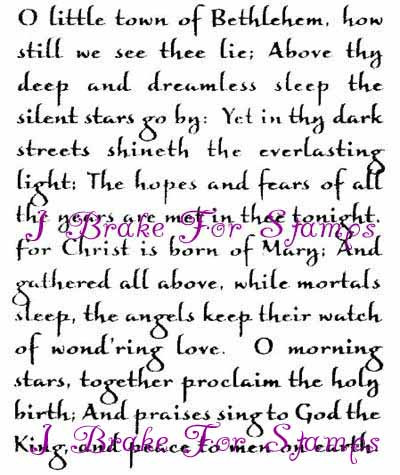 O little town of Bethlehem, how
still we see thee lie; Above thy
deep and dreamless sleep the
silent stars go by: Yet in thy dark
streets shineth the everlasting
light; The hopes and fears of all
the years are met in thee tonight.
I Brake For Stamps
for Christ is born of Mary; And
gathered all above, while mortals
sleep, the angels keep their watch
of wond'ring love. O morning
stars, together proclaim the holy
birth; And praises sing to God the
King, and peace to men on earth.
I Brake For Stamps